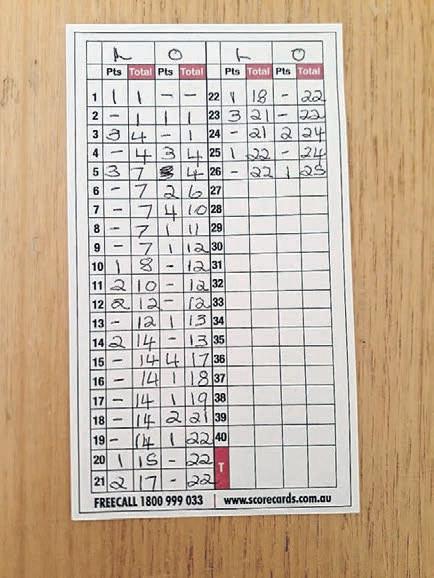 L O L O
Pts Total Pts Total Pts Total Pts Total
1 1 1 - - 22 1 18 - 22
2 - 1 1 1 23 3 21 - 22
3 3 4 - 1 24 - 21 2 24
4 - 4 3 4 25 1 22 - 24
5 3 7 4 26 - 22 1 25
6 - 7 2 6 27
7 - 7 4 10 28
8 - 7 1 11 29
9 - 7 1 12 30
10 1 8 - 12 31
11 2 10 - 12 32
12 2 12 - 12 33
13 - 12 1 13 34
14 2 14 - 13 35
15 - 14 4 17 36
16 - 14 1 18 37
17 - 14 1 19 38
18 - 14 2 21 39
19 - 14 1 22 40
20 1 15 - 22 T
21 2 17 - 22
FREECALL 1800 999 033 www.scorecards.com.au